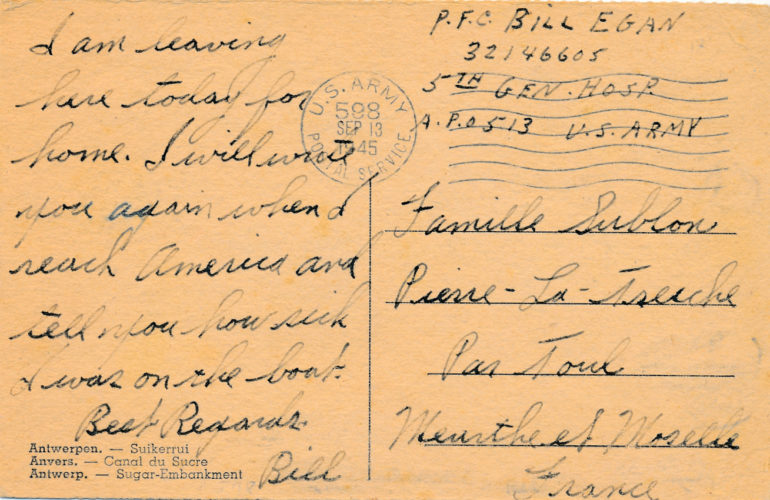 I am leaving
here today for
home. I will write
you again when I
reach America and
tell you how sick
I was on the boat.
Best Regards
Bill
Antwerpen. — Suikerrui
Anvers. — Canal du Sucre
Antwerp. — Sugar-Embankment
U.S. ARMY
598
SEP 13
1945
POSTAL SERVICE
P.F.C. BILL EGAN
32146605
5TH GEN. HOSP
A.P.O 513 U.S. ARMY
Famille Sublon
Pierre-La-Treiche
Par Toul
Meurthe et Moselle
France